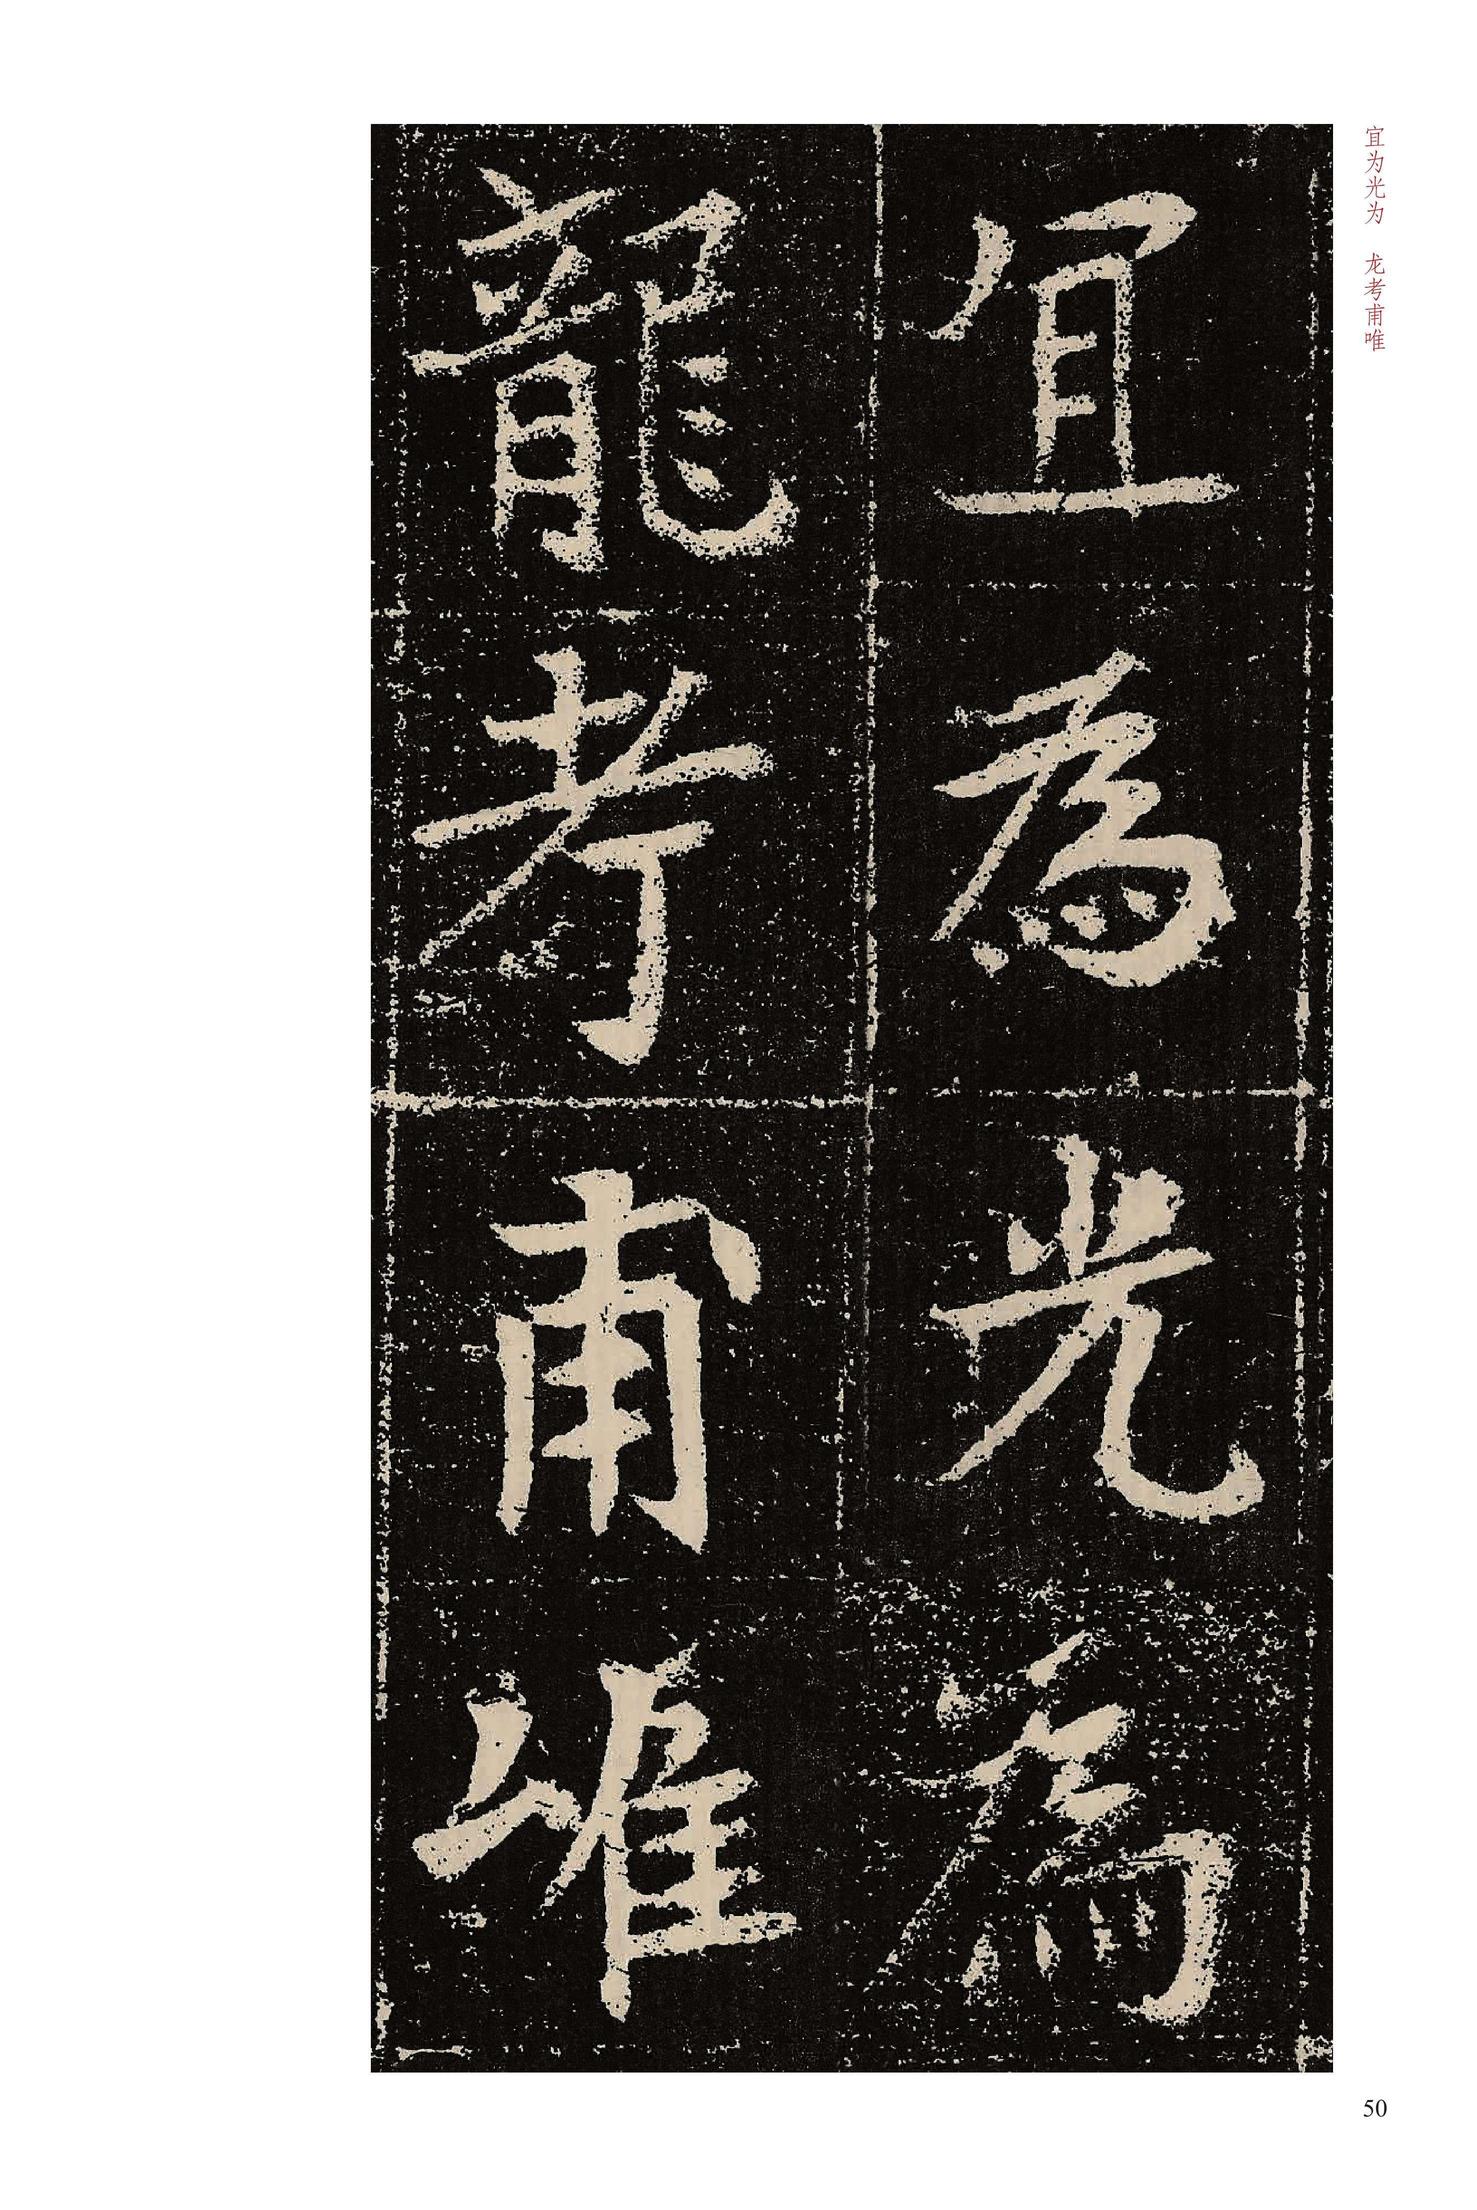 宜为光为 龙考甫唯
宜為光為
龍考甫唯
50